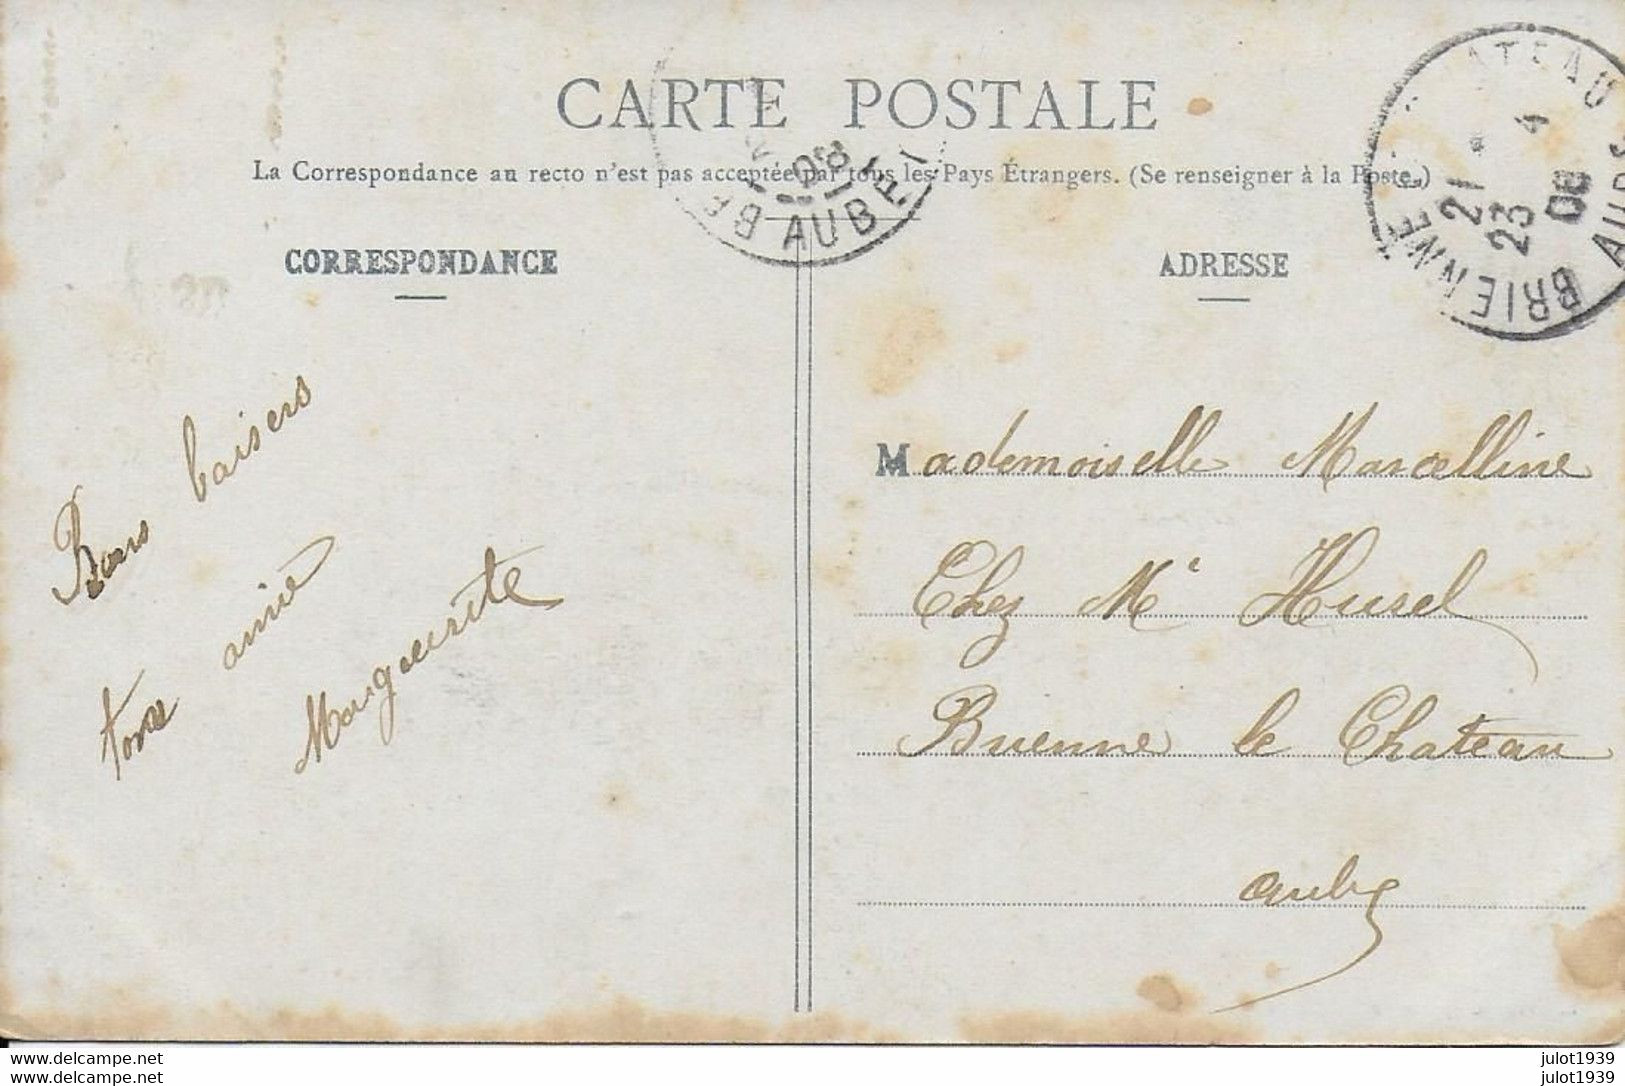 CARTE POSTALE
La Correspondance au recto n'est pas acceptée par tous les Pays Étrangers. (Se renseigner à la Poste.)
CORRESPONDANCE
ADRESSE
Bons baisers
ton amie
Marguerite
Mademoiselle Marcelline
Chez Mʳ Husel
Brienne le Chateau
aube
ATEAU
21 4
23
BRIENNE
AUBE
AUBE
www.delcampe.net
www.delcampe.net
julot1939
julot1939